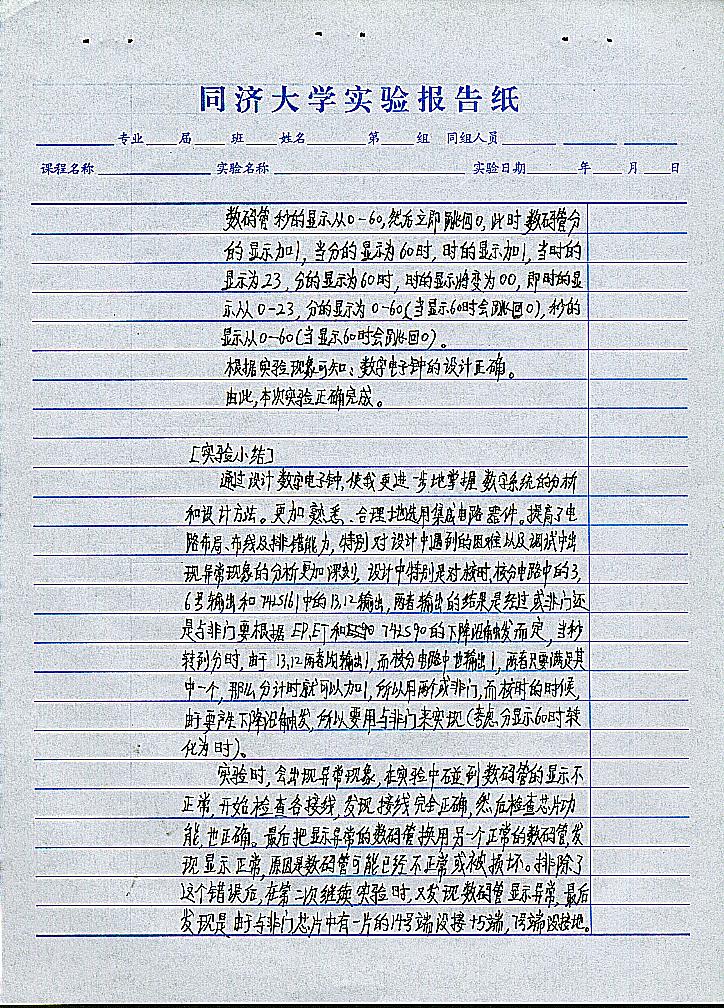 同济大学实验报告纸
专业 届 班 姓名 第 组 同组人员
课程名称 实验名称 实验日期 年 月 日
数码管秒的显示从0-60,然后立即跳回0,此时数码管分
的显示加1,当分的显示为60时,时的显示加1,当时的
显示为23,分的显示为60时,时的显示将变为00,即时的显
示从0-23,分的显示为0-60(当显示60时会跳回0),秒的
显示从0-60(当显示60时会跳回0)。
根据实验现象可知:数字电子钟的设计正确。
由此,本次实验正确完成。
[实验小结]
通过设计数字电子钟,使我更进一步地掌握数字系统的分析
和设计方法。更加熟悉、合理地选用集成电路器件。提高了电
路布局、布线及排错能力,特别对设计中遇到的困难以及调试中出
现异常现象的分析更加深刻,设计中特别是对校时、校分电路中的3,
6号输出和74LS161中的13,12输出,两者输出的结果是经过或非门还
是与非门要根据EP,ET和74LS90的下降沿触发而定,当秒
转到分时,由于13,12两者均输出1,而校分电路中也输出1,两者只要满足其
中一个,那么分计时就可以加1,所以用两个或非门,而校时的时候,
由于要产生下降沿触发,所以要用与非门来实现(考虑分显示60时转
化为时)。
实验时,会出现异常现象,在实验中碰到数码管的显示不
正常,开始检查各接线,发现接线完全正确,然后检查芯片功
能,也正确。最后把显示异常的数码管换用另一个正常的数码管,发
现显示正常,原因是数码管可能已经不正常或被损坏。排除了
这个错误后,在第二次继续实验时,又发现数码管显示异常,最后
发现是由于与非门芯片中有一片的14号端没接+5端,7号端没接地。